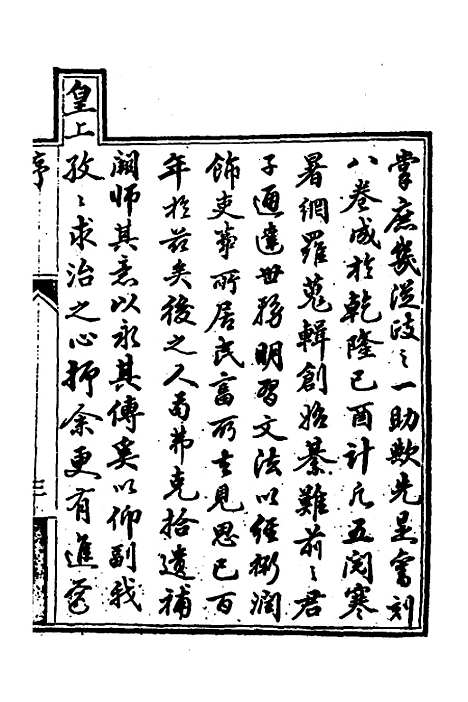 掌庶幾從政之一助歟先是會刻
八卷成於乾隆己酉計凡五閱寒
暑網羅蒐輯創始綦難前之君
子通達世務明習文法以經術潤
飾吏事所居民富所去見思已百
年於茲矣後之人苟弗克拾遺補
闕師其意以永其傳奚以仰副我
皇上孜〻求治之心抑余更有進
序
三